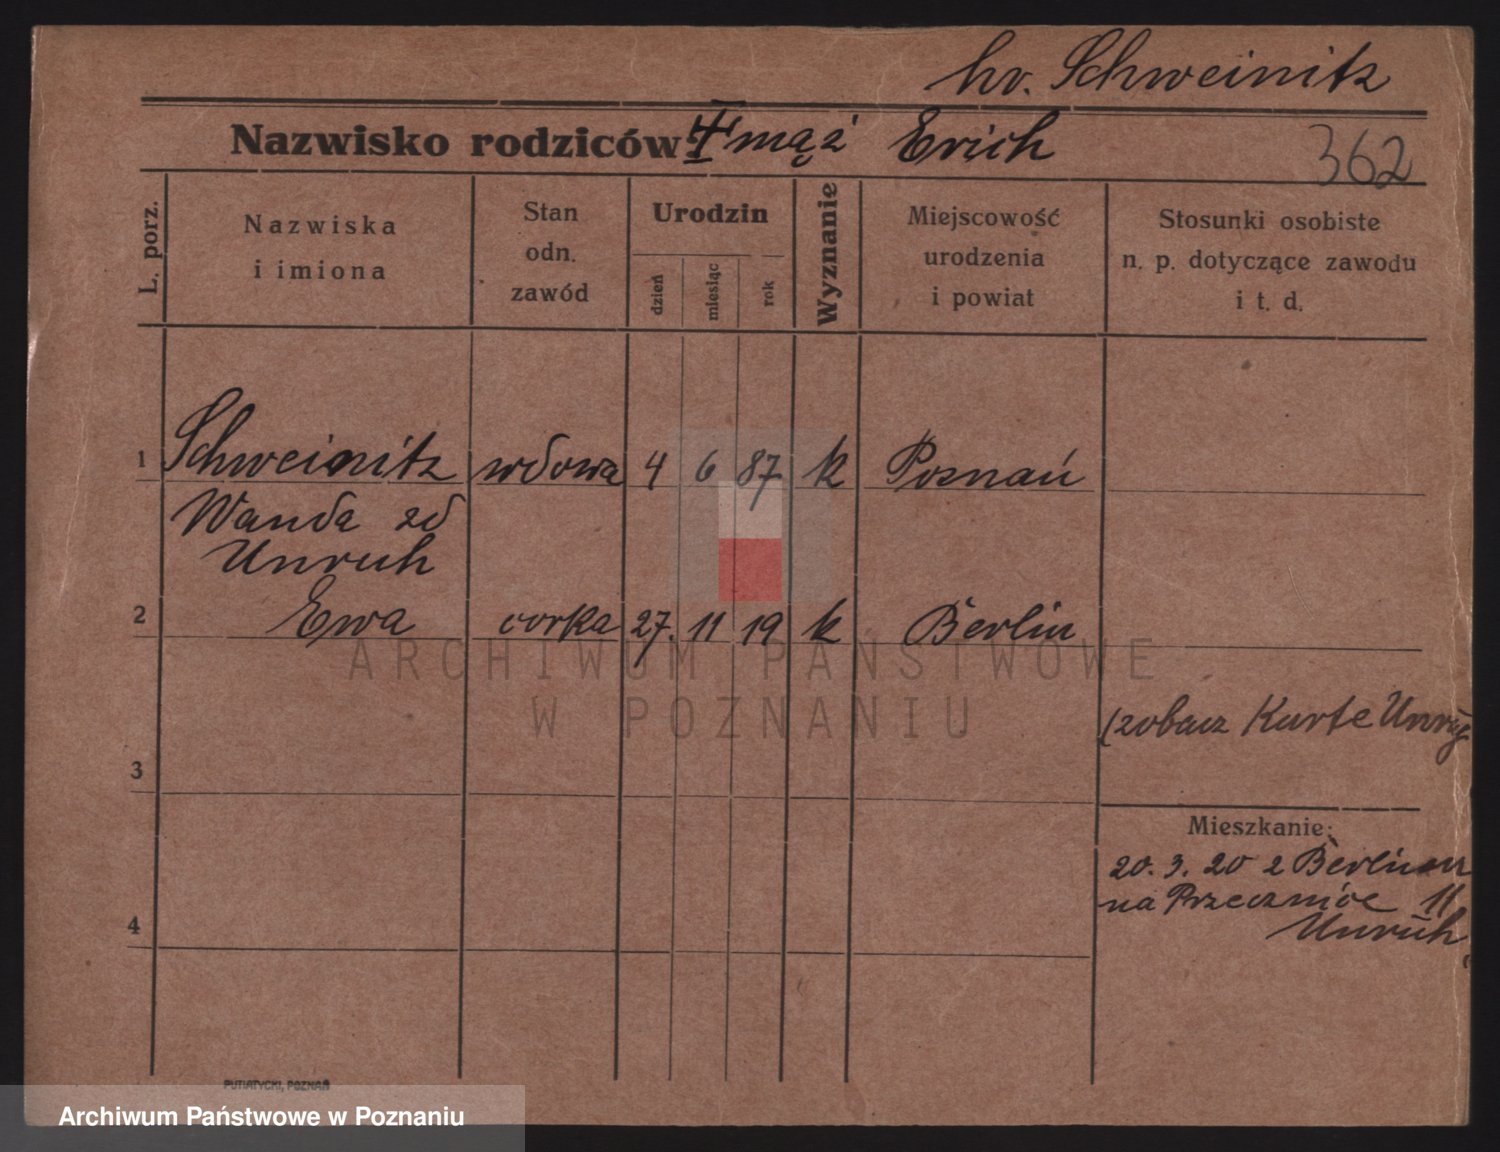 hr. Schweinitz
Nazwisko rodziców mąż Erich
362
L. porz.
Nazwiska
i imiona
Stan
odn.
zawód
Urodzin
dzień
miesiąc
rok
Wyznanie
Miejscowość
urodzenia
i powiat
Stosunki osobiste
n. p. dotyczące zawodu
i t. d.
1 Schweinitz wdowa 4 6 87 k Poznań
Wanda zd
Unruh
2 Ewa corka 27. 11 19 k Berlin
ARCHIWUM PAŃSTWOWE
W POZNANIU
(zobacz Karte
3
Mieszkanie:
20. 3. 20 z Berlina
na Przecznice 11
Unruh
4
PUTIATYCKI, POZNAŃ
Archiwum Państwowe w Poznaniu